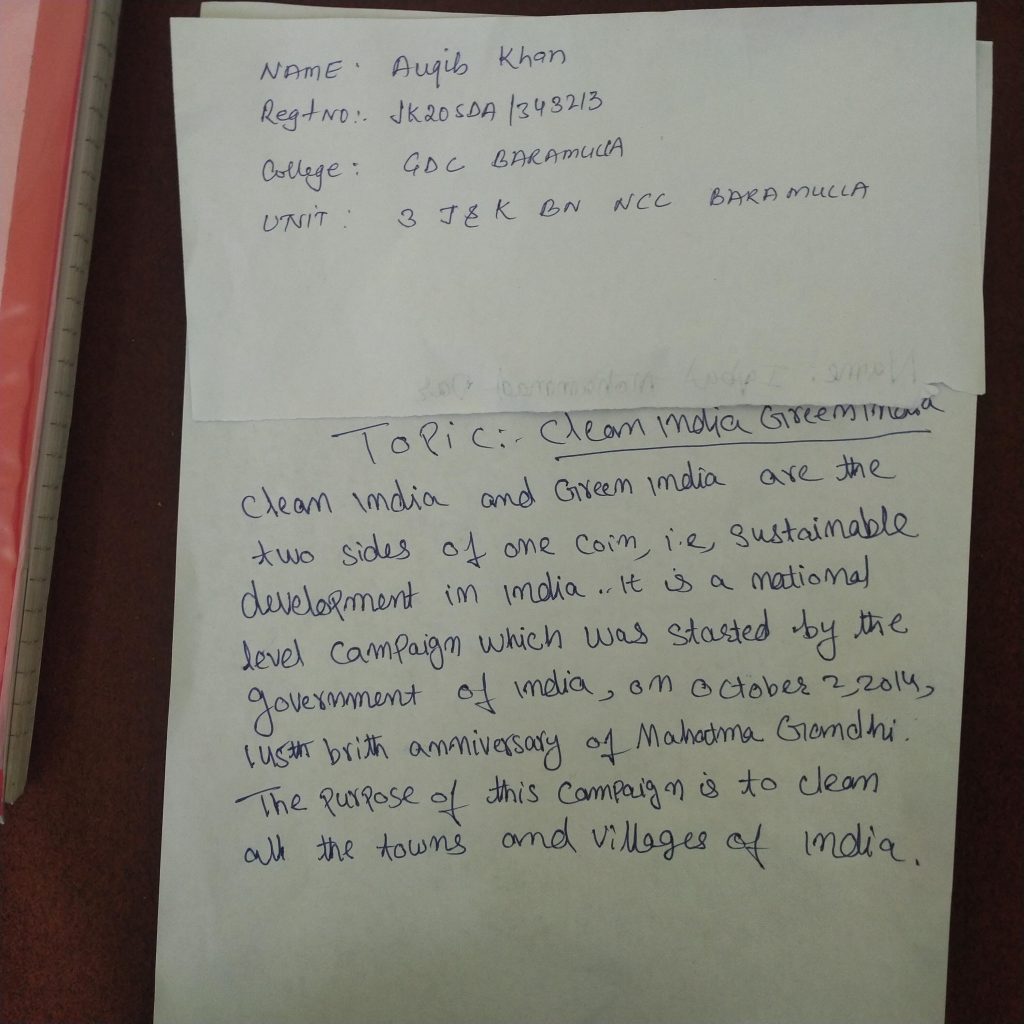 NAME: Auqib Khan
Regt No:. JK20SDA/343213
College: GDC BARAMULLA
UNIT: 3 J&K BN NCC BARAMULLA
Name: Iqbal Mohammad Dar
Topic:- Clean india Green india
Clean india and Green india are the
two sides of one coin, i.e, sustainable
development in india.. it is a national
level campaign which was started by the
government of india, on october 2,2014,
145th brith anniversary of Mahatma Gandhi.
The purpose of this campaign is to clean
all the towns and villages of india.